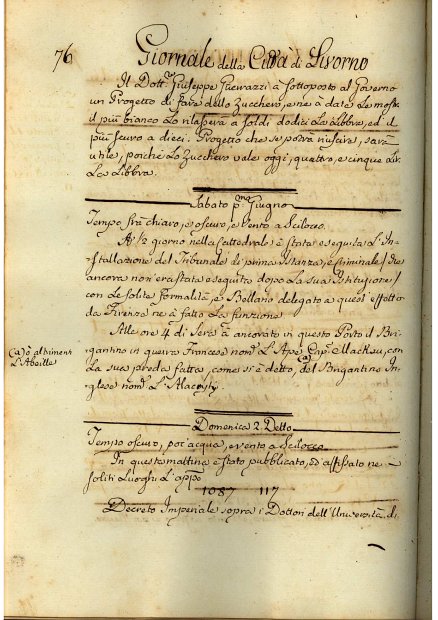 76
Giornale della Città di Livorno
Il Dottr. Giuseppe Guerrazzi à sottoposto al Governo
un Progetto di fare dello Zucchero, e ne à date le mostre
il più bianco lo rilasserà a soldi dodici la Libbra, ed il
più scuro a dieci. Progetto che se potrà riuscire, sarà
utile, poichè lo Zucchero vale oggi, quattro, e cinque Lir.
La Libbra.
Sabato pmo. Giugno
Tempo frà chiaro, e oscuro, e vento a Scilocco.
A 1/2 giorno nella Cattedrale è stata eseguita L'In-
stallazione del Tribunale di prima Istanza, e Criminale / che
ancora non era stata eseguita dopo La sua Istituzione /
con Le solite formalità, e Bellano delegato a quest' effetto
da Firenze ne à fatto La funzione
Alle ore 4 di Sera à ancorato in questo Porto il Bri-
gantino in guerra Francese nomo. L'Ape Capo. Mackau, con
(a)
(a) ò altrimenti
L'Abeille
La sua preda fatta, come si è detto, del Brigantino In-
glese nomo. L'Alacrity
Domenica 2. Detto
Tempo oscuro, poc'acqua, e vento a Scilocco
In questa mattina è stato pubblicato, ed affissato ne
soliti Luoghi L'appo.
1087 117
Decreto Imperiale sopra i Dottori dell'Università di